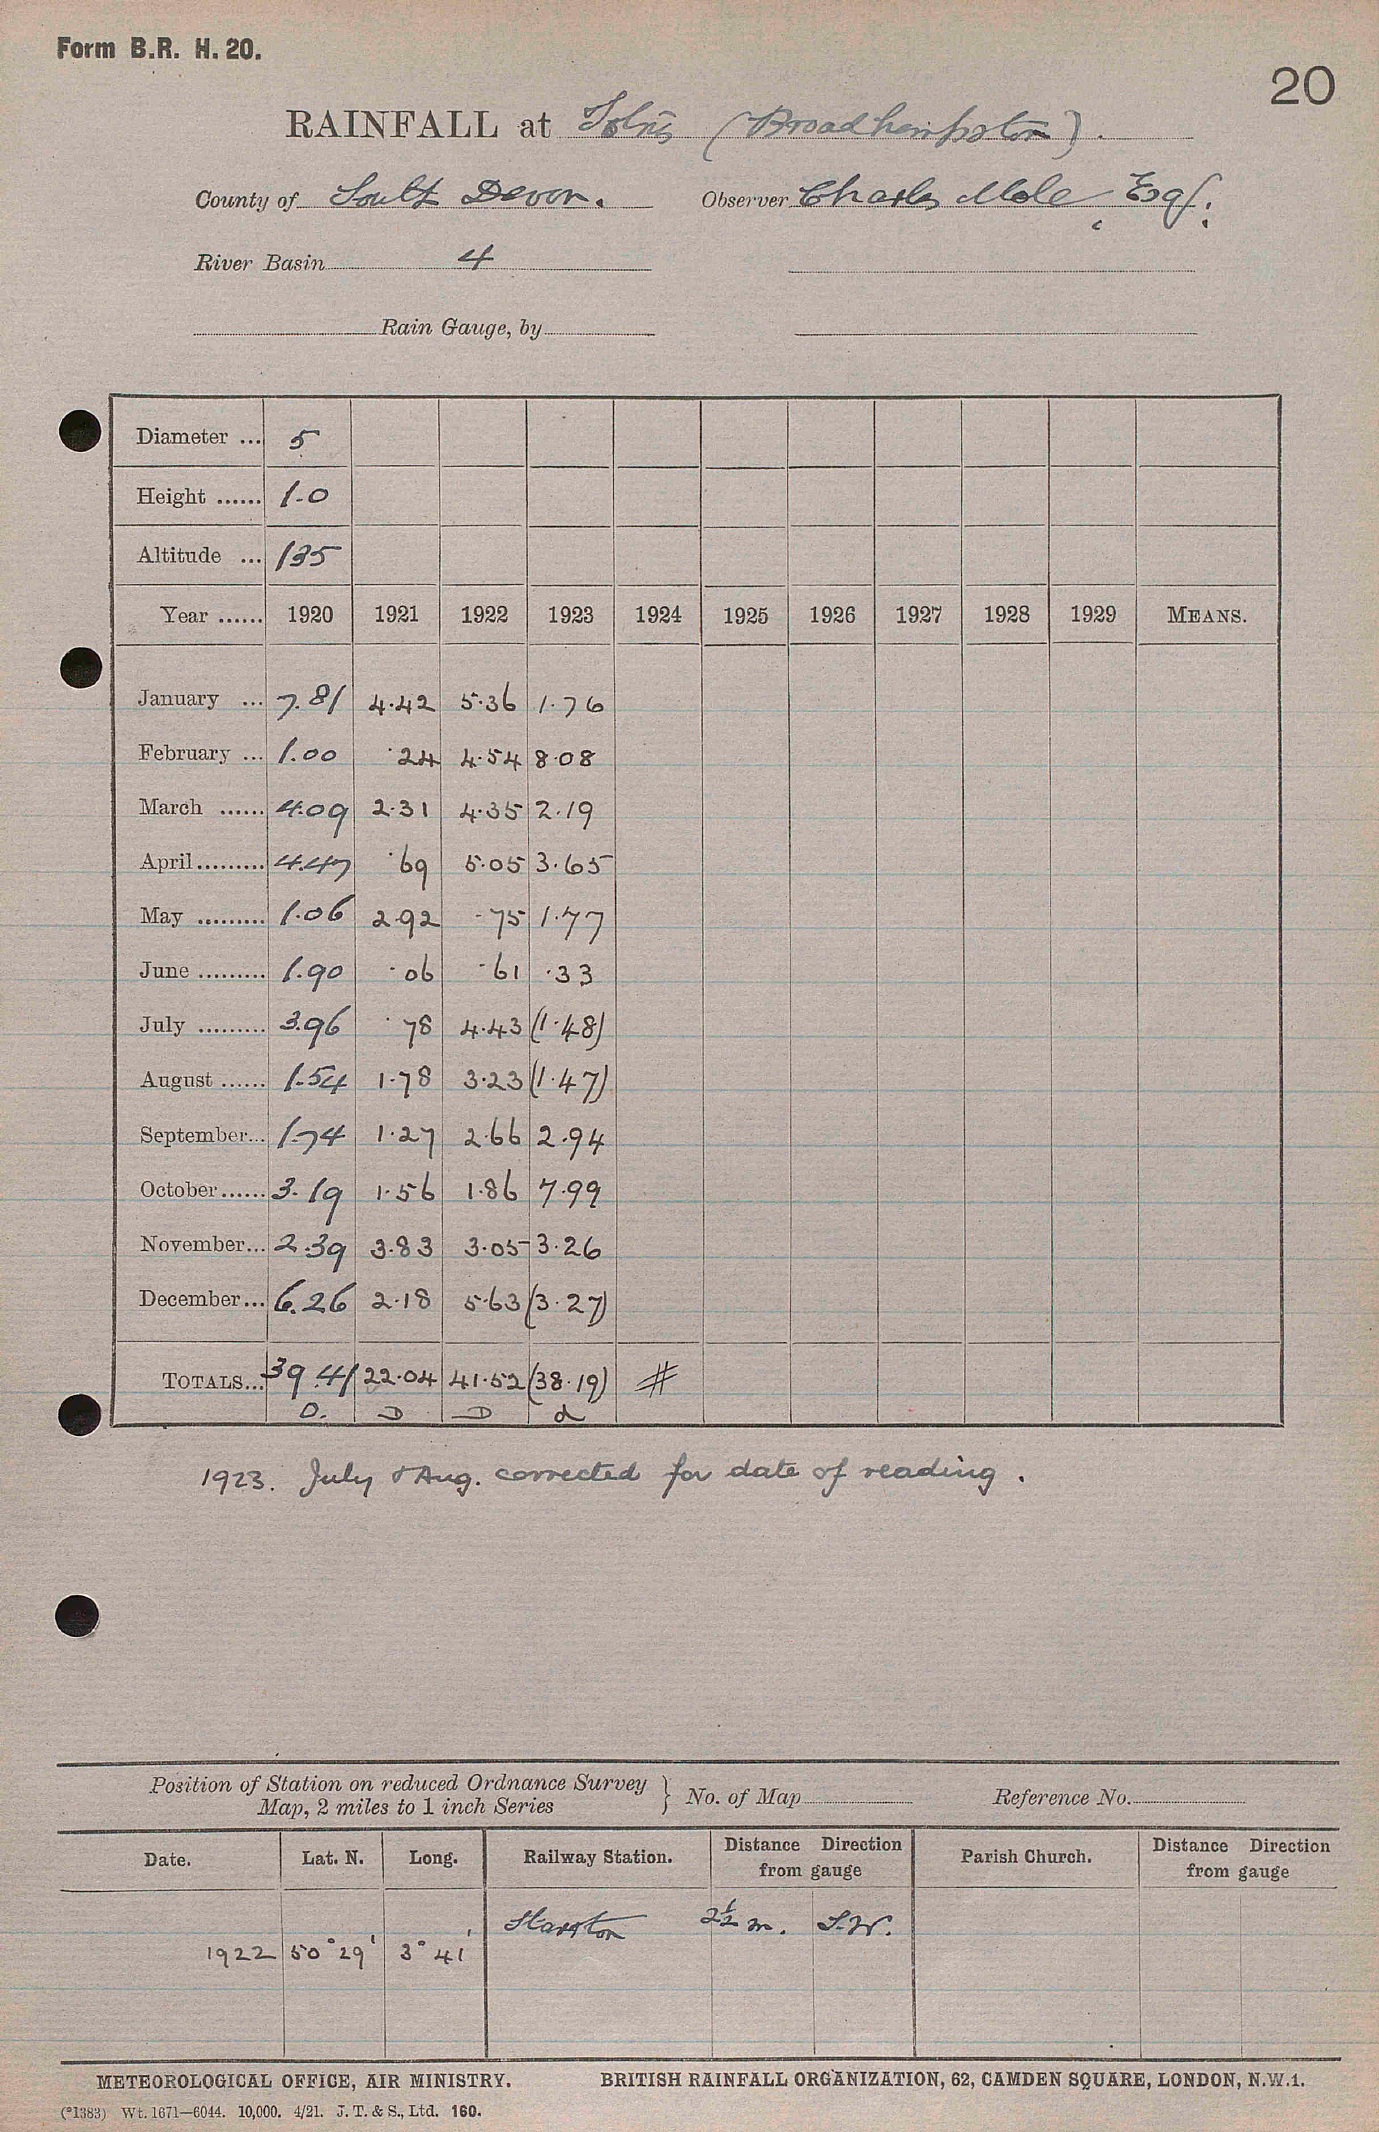 Form B.R. H. 20.
20
RAINFALL at (Broadhempston).
County of South Devon. Observer Charles Mole, Esq.
River Basin 4
Rain Gauge, by
Diameter ... 5
Height ...... 1.0
Altitude ... 135
Year ...... 1920 1921 1922 1923 1924 1925 1926 1927 1928 1929 MEANS.
January ... 7.81 4.42 5.36 1.76
February ... 1.00 .24 4.54 8.08
March ...... 4.09 2.31 4.35 2.19
April ......... 4.47 .69 5.05 3.65
May ......... 1.06 2.92 .75 1.77
June ......... 1.90 .06 .61 .33
July ......... 3.96 .78 4.43 (1.48)
August ...... 1.54 1.78 3.23 (1.47)
September... 1.74 1.27 2.66 2.94
October ...... 3.19 1.56 1.86 7.99
November... 2.39 3.83 3.05 3.26
December... 6.26 2.18 5.63 (3.27)
TOTALS... 39.41 22.04 41.52 (38.19) #
D. D D d
1923. July & Aug. corrected for date of reading.
Position of Station on reduced Ordnance Survey
Map, 2 miles to 1 inch Series } No. of Map Reference No.
Date. Lat. N. Long. Railway Station. Distance Direction from gauge Parish Church. Distance Direction from gauge
2½ m. S.W.
1922 50° 29' 3° 41'
METEOROLOGICAL OFFICE, AIR MINISTRY. BRITISH RAINFALL ORGANIZATION, 62, CAMDEN SQUARE, LONDON, N.W.1.
(*1383) Wt. 1671—6044. 10,000. 4/21. J. T. & S., Ltd. 160.